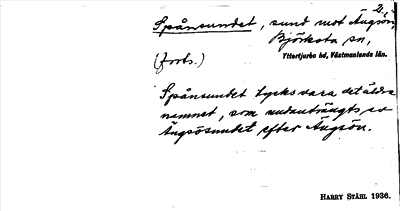 2.
Spånsundet, sund mot Ängsön,
Björksta sn,
(forts.) Yttertjurbo hd, Västmanlands län.
Spånsundet tycks vara det äldre
namnet, som undanträngts av
Ängsösundet efter Ängsön.
HARRY STÅHL 1936.